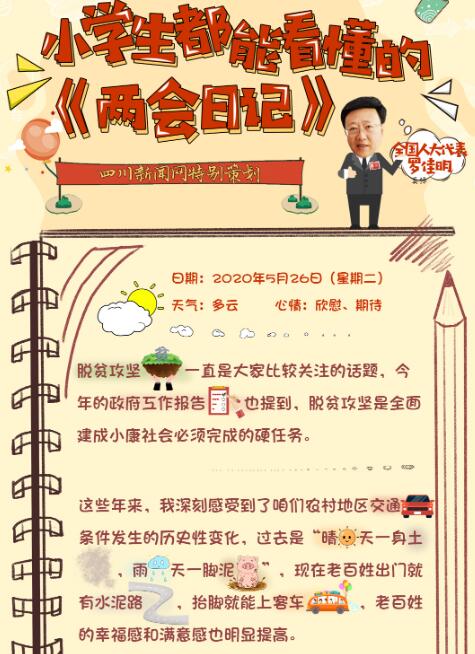 小学生都能看懂的
《两会日记》
四川新闻网特别策划
全国人大代表
罗佳明
日期：2020年5月26日（星期二）
天气：多云 心情：欣慰、期待
脱贫攻坚 一直是大家比较关注的话题，今
年的政府工作报告 也提到，脱贫攻坚是全面
建成小康社会必须完成的硬任务。
这些年来，我深刻感受到了咱们农村地区交通
条件发生的历史性变化，过去是“晴 天一身土
，雨 天一脚泥 ”，现在老百姓出门就
有水泥路 ，抬脚就能上客车 ，老百姓
的幸福感和满意感也明显提高。